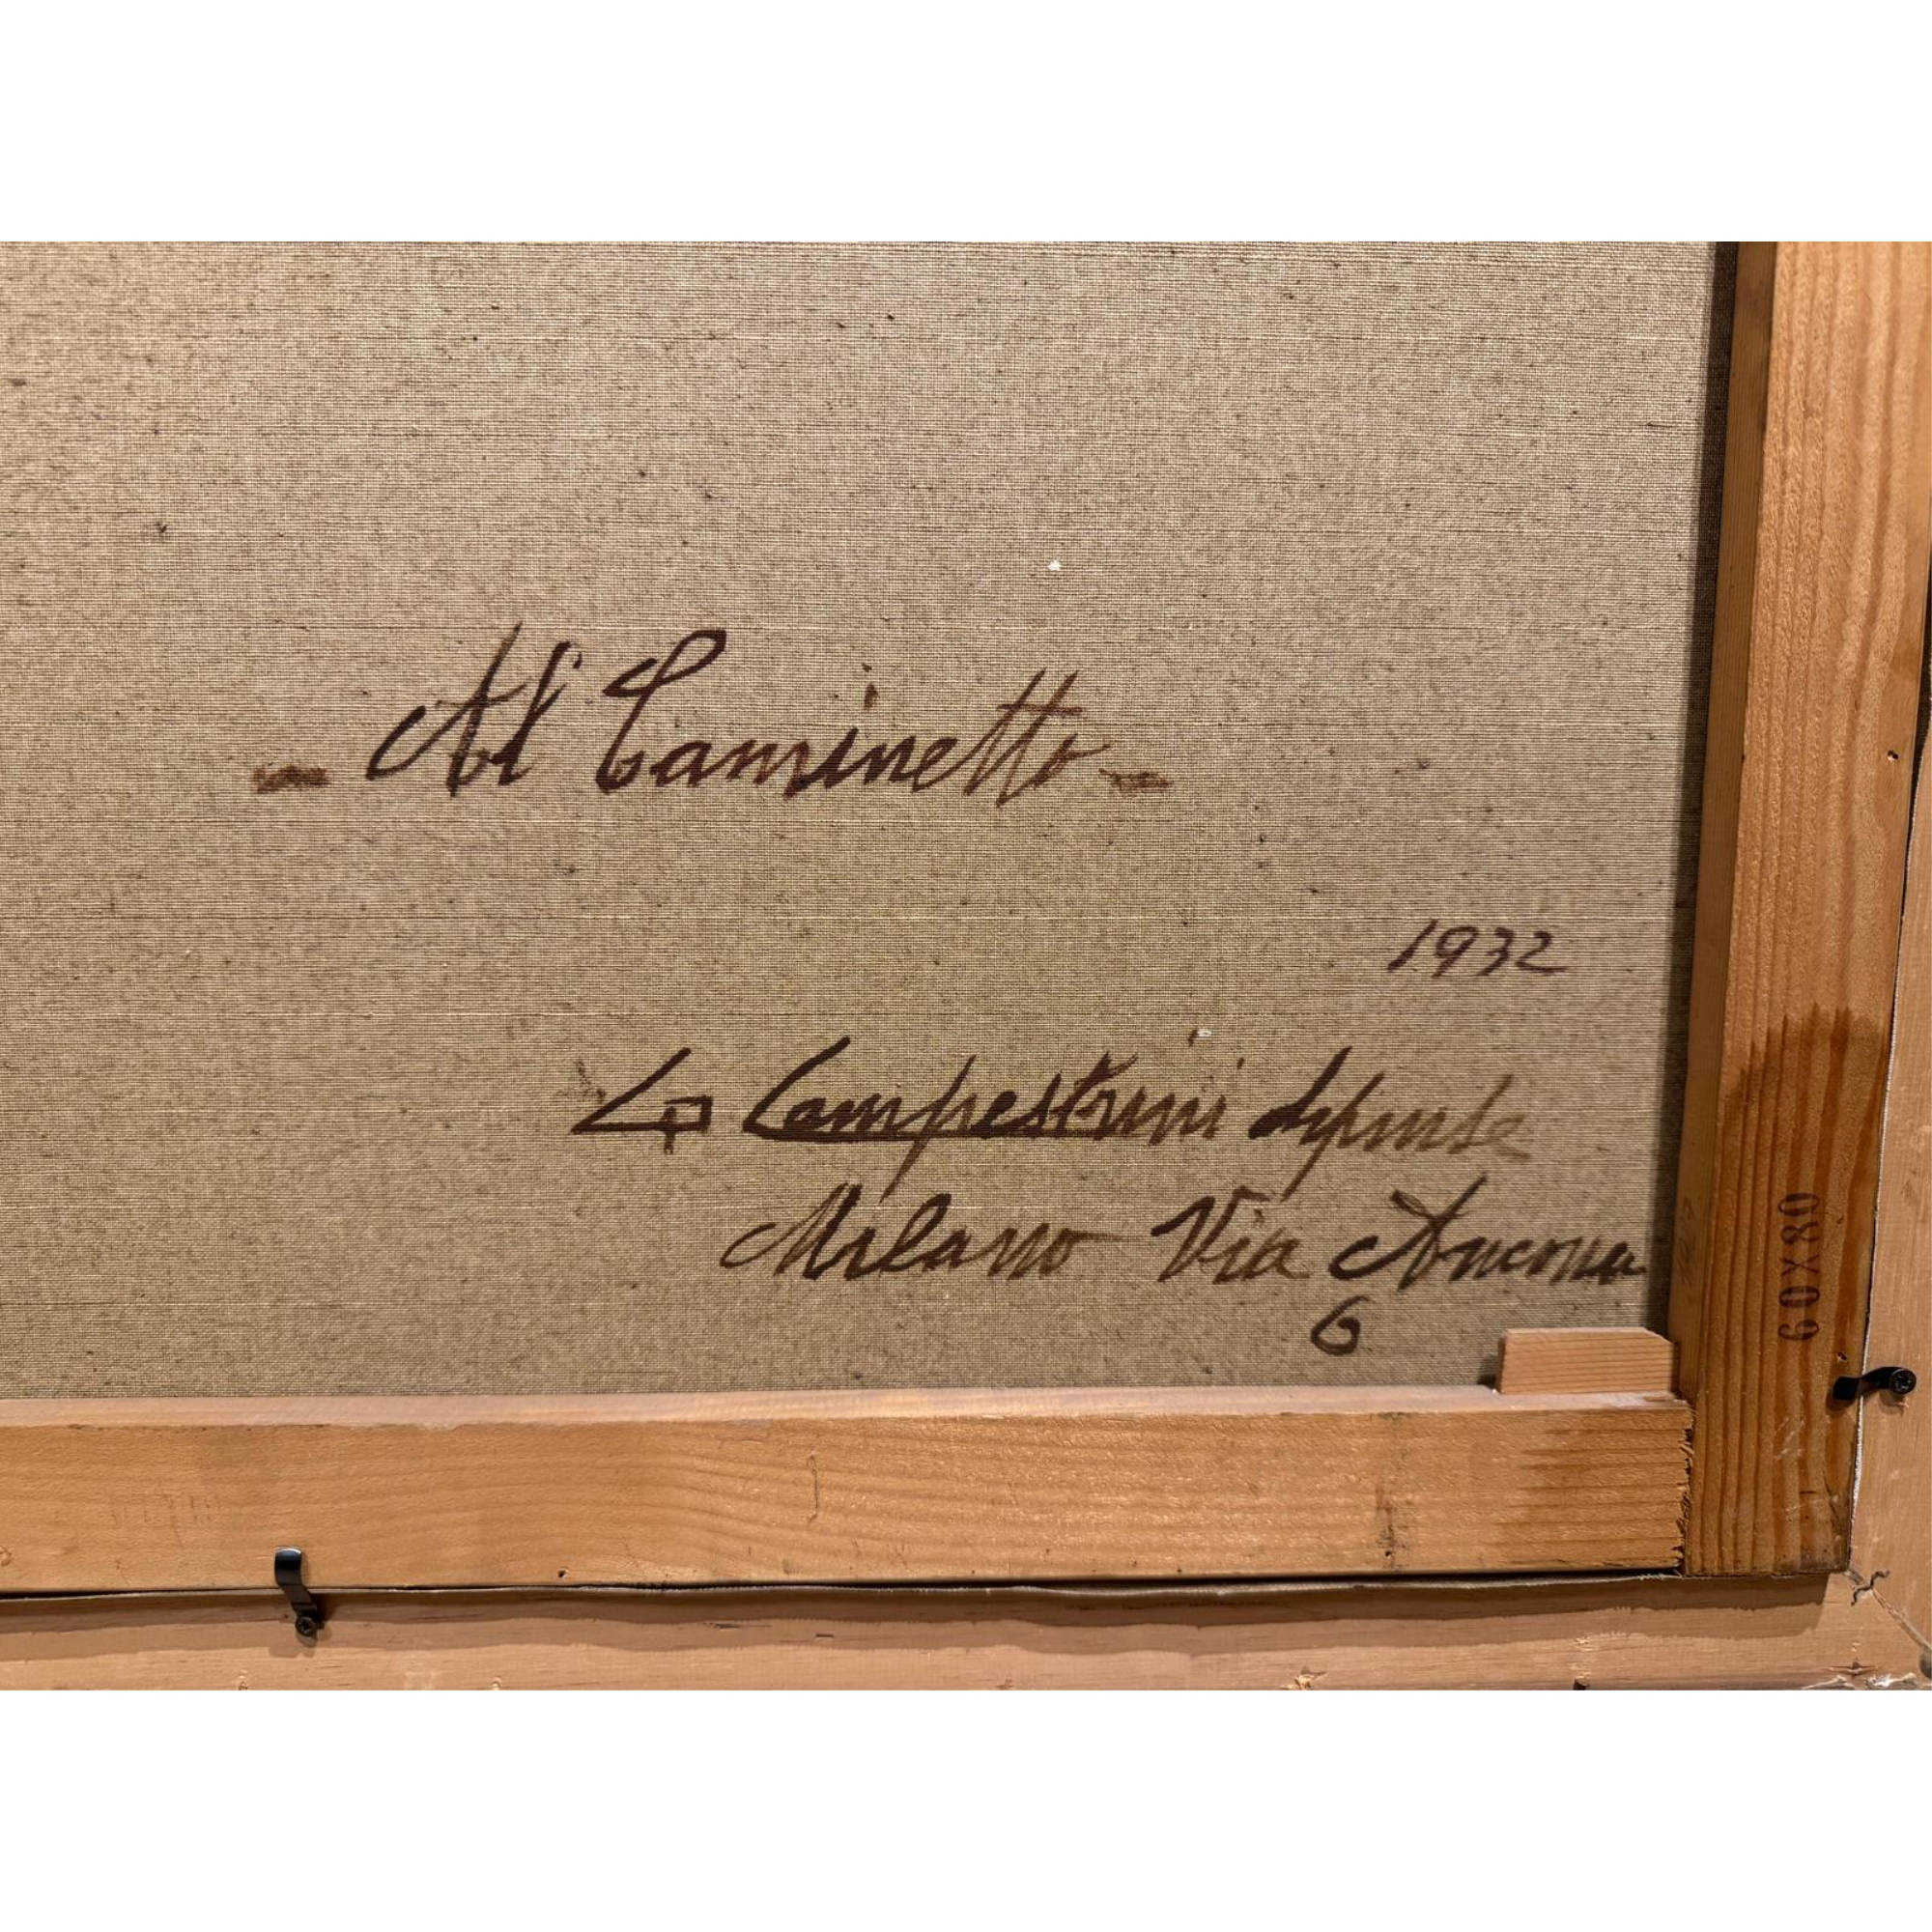 - Al Caminetto -
1932
Campestrini dipinse
Milano Via Ancona
6
60X80